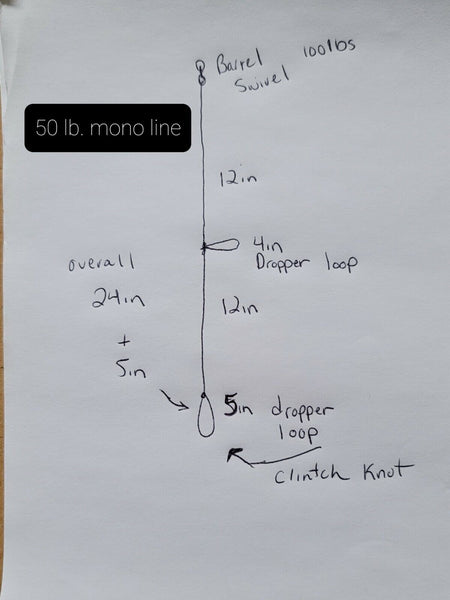 Barrel 100lbs
Swivel
50 lb. mono line
12in
4in
Dropper loop
overall
24in
12in
+
5in
5in dropper
loop
Clintch Knot